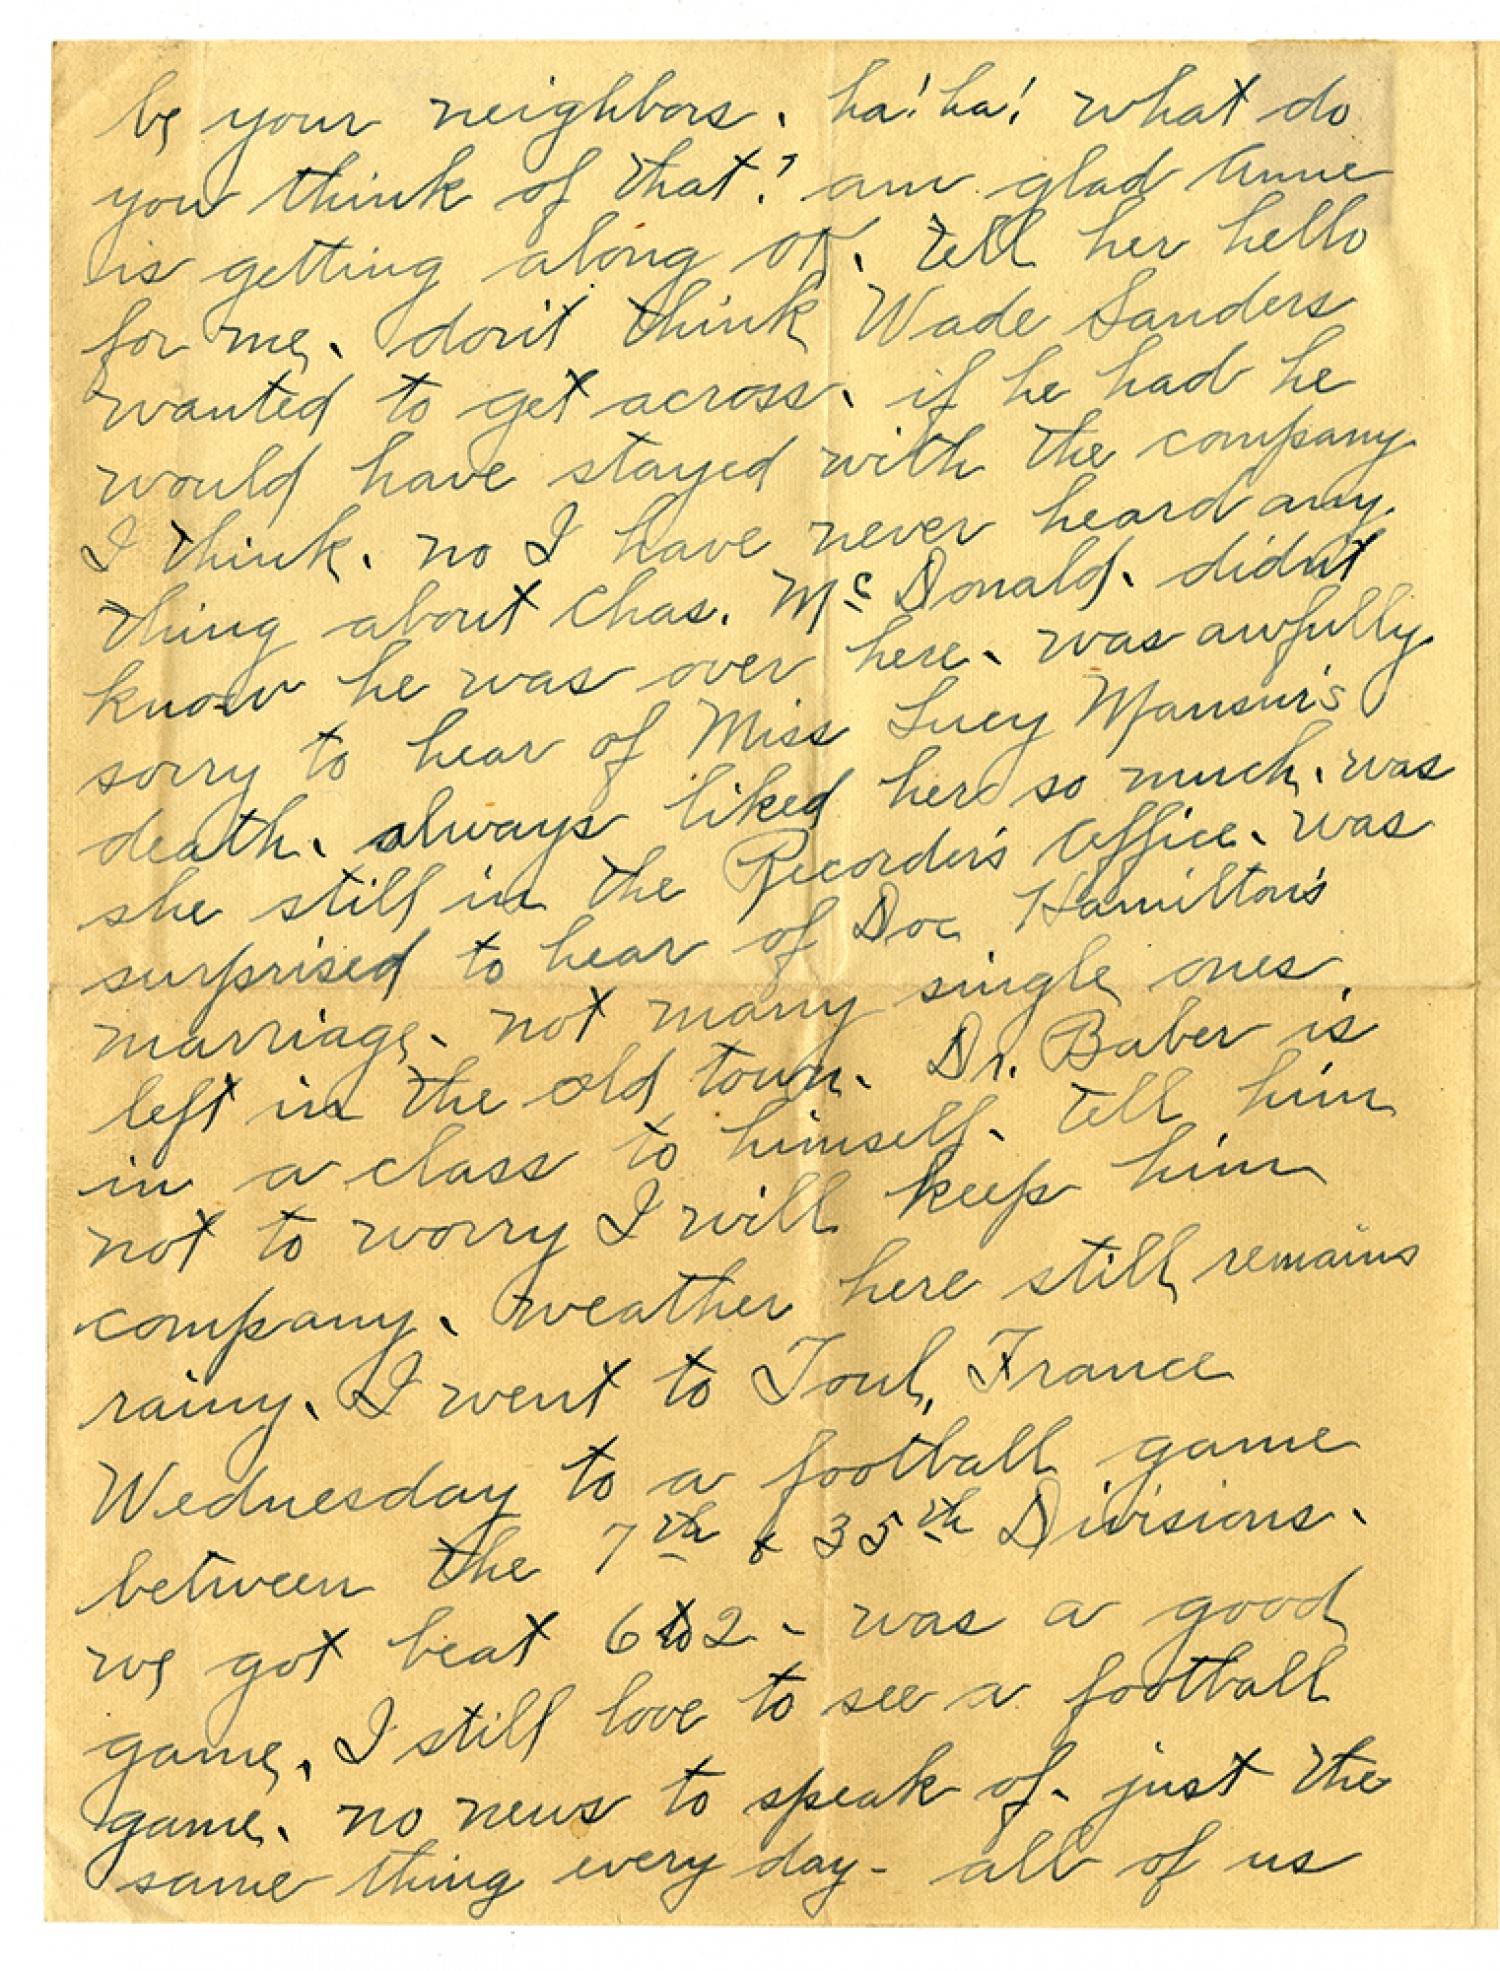 be your neighbors. ha! ha! what do
you think of that! am glad Anne
is getting along OK. tell her hello
for me. don't think Wade Sanders
wanted to get across. if he had he
would have stayed with the company
I think. no I have never heard any
thing about Chas. McDonald. didn't
know he was over here. was awfully
sorry to hear of Miss Lucy Mansur's
death. always liked her so much. was
she still in the Recorder's Office. was
surprised to hear of Doc Hamilton's
marriage. not many single ones
left in the old town. Dr. Baber is
in a class to himself. tell him
not to worry I will keep him
company. weather here still remains
rainy. I went to Toul, France
Wednesday to a football game
between the 7th & 35th Divisions.
we got beat 6 to 2 - was a good
game. I still love to see a football
game. no news to speak of. just the
same thing every day - all of us